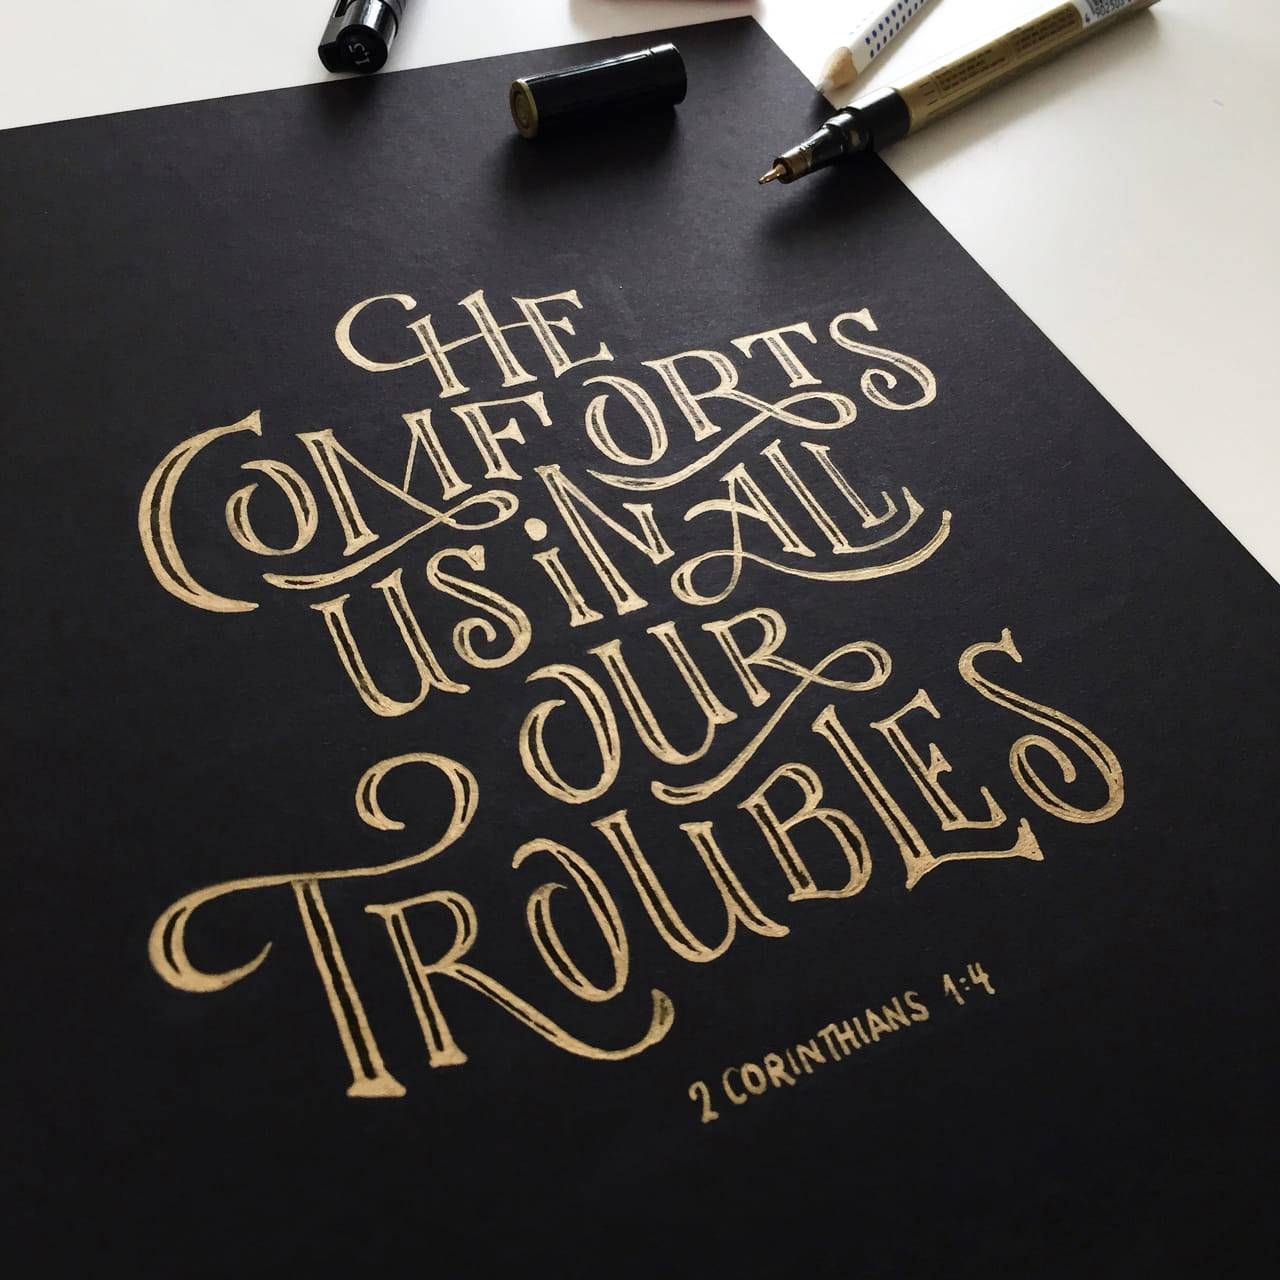 1,5
HE
COMFORTS
US iN ALL
OUR
TROUBLES
2 CORINTHIANS 1:4